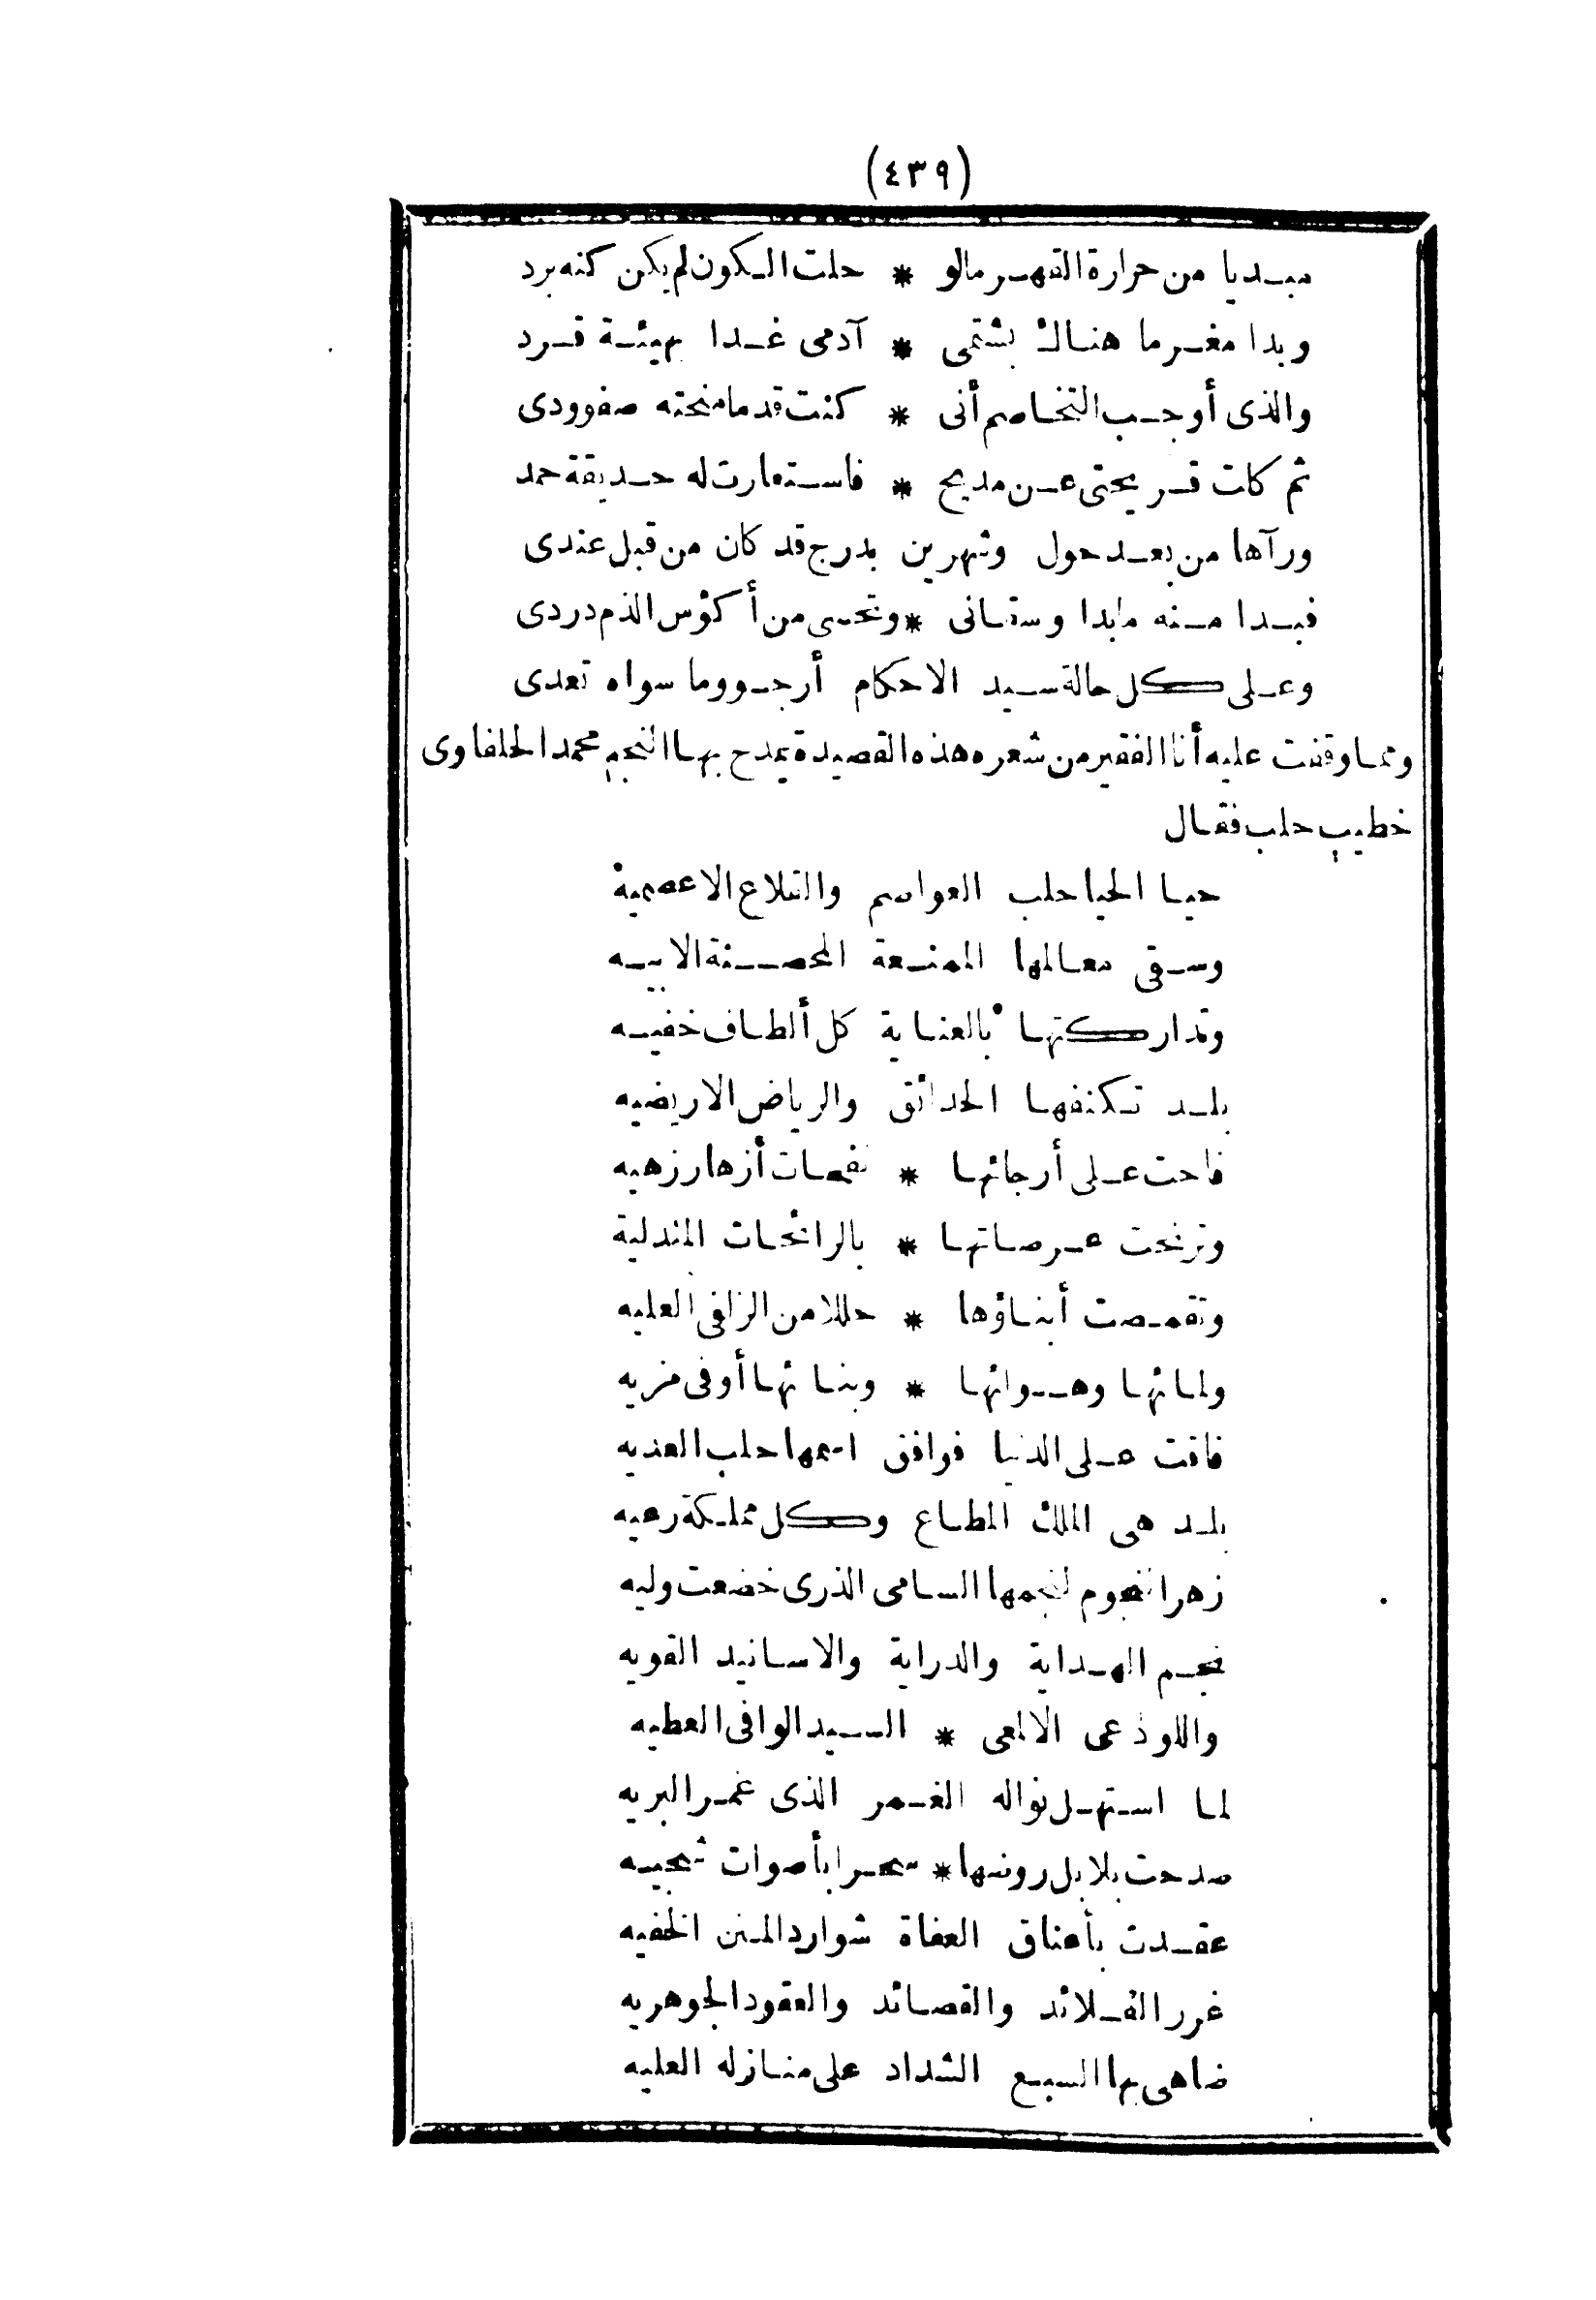 (٤٣٩)
مبديا من حرارة القهر مالو * حلت الكون لم يكن كنه برد
وبدا مغرما هناك بشتمى * آدمى غدا بهيئة قرد
والذى أوجب التخاصم أنى * كنت قدما منحته صفو ودى
ثم كلت قريحتى عن مديح * فاستعارت له حديقة حمد
ورآها من بعد حول وشهرين بدرج قد كان من قبل عندى
فبدا منه ما بدا وسقانى * وتحسى من أكؤس الذم دردى
وعلى كل حالة سيد الاحكام أرجو وما سواه تعدى
ومما وقفت عليه أنا الفقير من شعره هذه القصيدة يمدح بها النجم محمد الحلفاوى
خطيب حلب فقال
حيا الحيا حلب العواصم والتلاع الاعصمية
وسقى معالمها الممنعة المحصنة الابيه
وتداركتها بالعناية كل ألطاف خفيه
بلد تكنفها الحدائق والرياض الاريضيه
فاحت على أرجائها * نفحات أزهار زهيه
وترنحت عرصاتها * بالرائحات المندلية
وتقمصت أبناؤها * حللا من الزلفى العليه
ولمائها وهوائها * وبنائها أوفى مزيه
فاقت على الدنيا فوافق اسمها حلب العذيه
بلد هى الملك المطاع وكل مملكة رعيه
زهر النجوم لنجمها السامى الذرى خضعت وليه
نجم الهداية والدراية والاسانيد القويه
واللوذعى الالمعى * السيد الوافى العطيه
لما استهل نواله الغمر الذى غمر البريه
صدحت بلابل روضها * سحرا بأصوات شجيه
عقدت بأعناق العفاة شوارد المنن الخفيه
غرر القلائد والقصائد والعقود الجوهريه
ضاهى بها السبع الشداد على منازله العليه